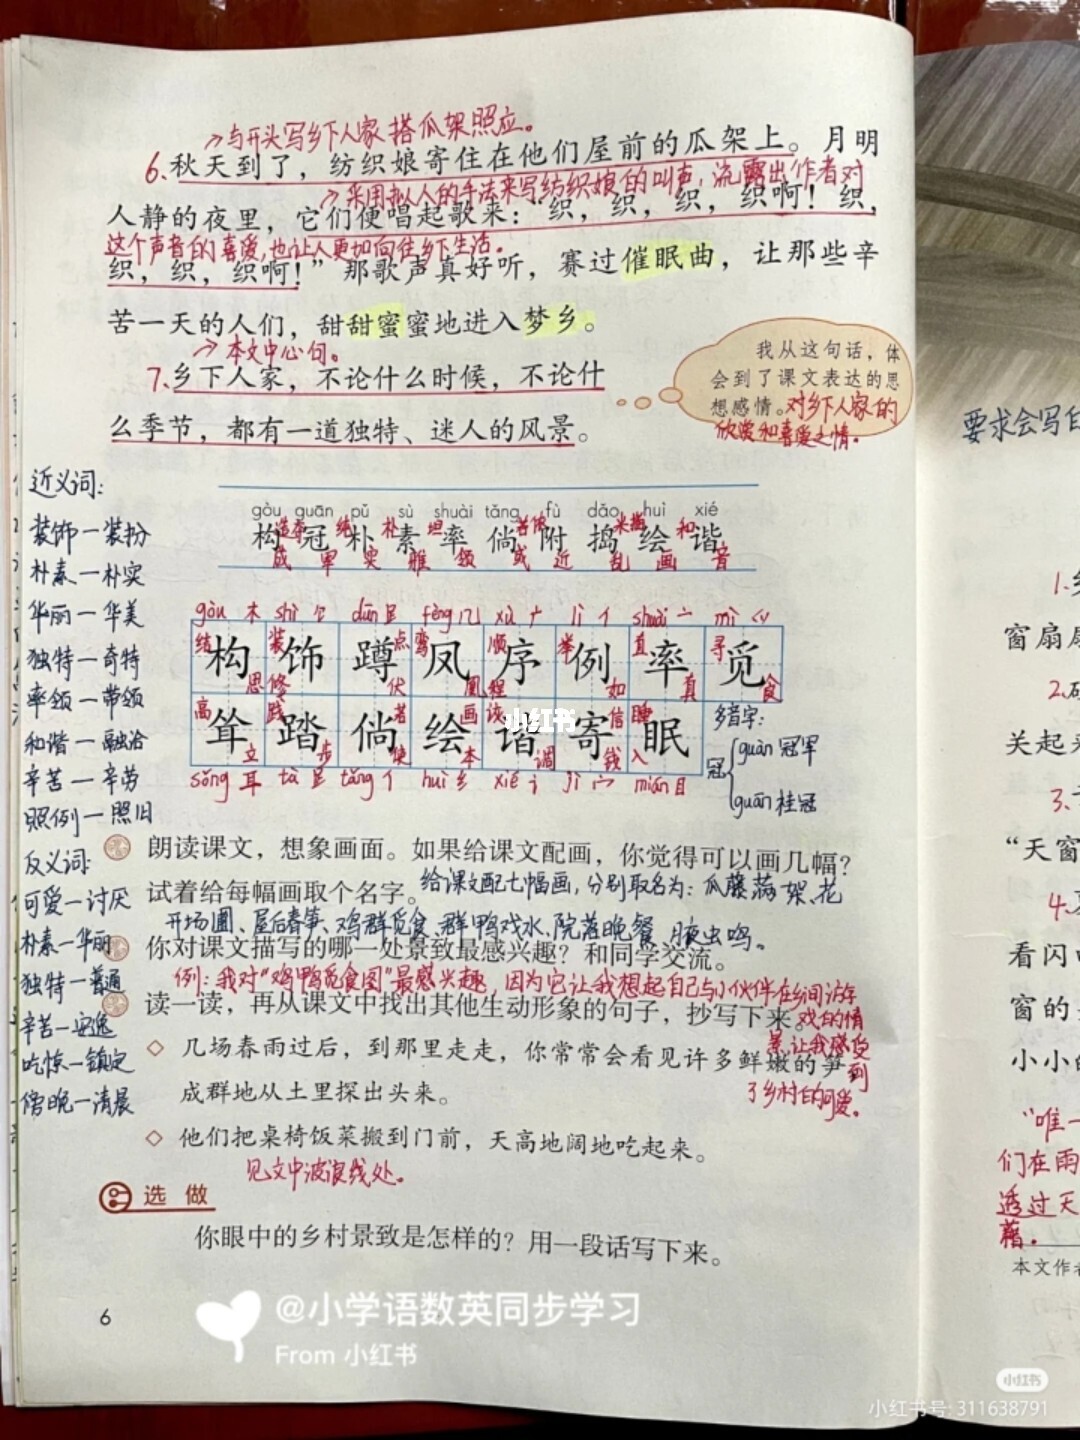 →与开头写乡下人家搭瓜架照应。
6.秋天到了，纺织娘寄住在他们屋前的瓜架上。月明
→采用拟人的手法来写纺织娘的叫声，流露出作者对
人静的夜里，它们便唱起歌来：“织，织，织，织啊！织，
这个声音的喜爱，也让人更加向往乡下生活。
织，织，织啊！”那歌声真好听，赛过催眠曲，让那些辛
苦一天的人们，甜甜蜜蜜地进入梦乡。
→本文中心句。
7.乡下人家，不论什么时候，不论什
么季节，都有一道独特、迷人的风景。
我从这句话，体
会到了课文表达的思
想感情。对乡下人家的
欣赏和喜爱之情。
近义词：
装饰—装扮
朴素—朴实
华丽—华美
独特—奇特
率领—带领
和谐—融洽
辛苦—辛劳
照例—照旧
反义词：
可爱—讨厌
朴素—华丽
独特—普通
辛苦—安逸
吃惊—镇定
傍晚—清晨
gòu guān pǔ sù shuài tǎng fù dǎo huì xié
构 冠 朴 素 率 倘 附 捣 绘 谐
成 军 实 雅 领 或 近 乱 画 音
gòu 木 shì 饣 dūn 𧾷 fèng 几 xù 广 lì 亻 shuài 亠 mì 爫
构 饰 蹲 凤 序 例 率 觅
结 装 点 鸾 顺 举 直 寻
思 修 伏 凰 程 如 真 食
耸 踏 倘 绘 谐 寄 眠
高 践 若 画 诙 信 睡
立 步 使 本 调 钱 入
sǒng 耳 tà 𧾷 tǎng 亻 huì 纟 xié 讠 jì 宀 mián 目
多音字：
冠
guàn 冠军
guān 桂冠
小红书
朗读课文，想象画面。如果给课文配画，你觉得可以画几幅？
试着给每幅画取个名字。给课文配七幅画，分别取名为：瓜藤满架、花
开场圃、屋后春笋、鸡群觅食、群鸭戏水、院落晚餐、夜虫鸣。
你对课文描写的哪一处景致最感兴趣？和同学交流。
例：我对“鸡鸭觅食图”最感兴趣，因为它让我想起自己与小伙伴在乡间游
读一读，再从课文中找出其他生动形象的句子，抄写下来。
戏的情
景，让我感受
到
了乡村的可爱。
◇ 几场春雨过后，到那里走走，你常常会看见许多鲜嫩的笋，
成群地从土里探出头来。
◇ 他们把桌椅饭菜搬到门前，天高地阔地吃起来。
见文中波浪线处。
选做
你眼中的乡村景致是怎样的？用一段话写下来。
6
@小学语数英同步学习
From 小红书
要求会写
1.
窗扇
2.
关起来
3.
“天窗
4.
看闪
窗的
小小的
“唯一
们在雨
透过天
藉。
本文作者
小红书
小红书号: 311638791